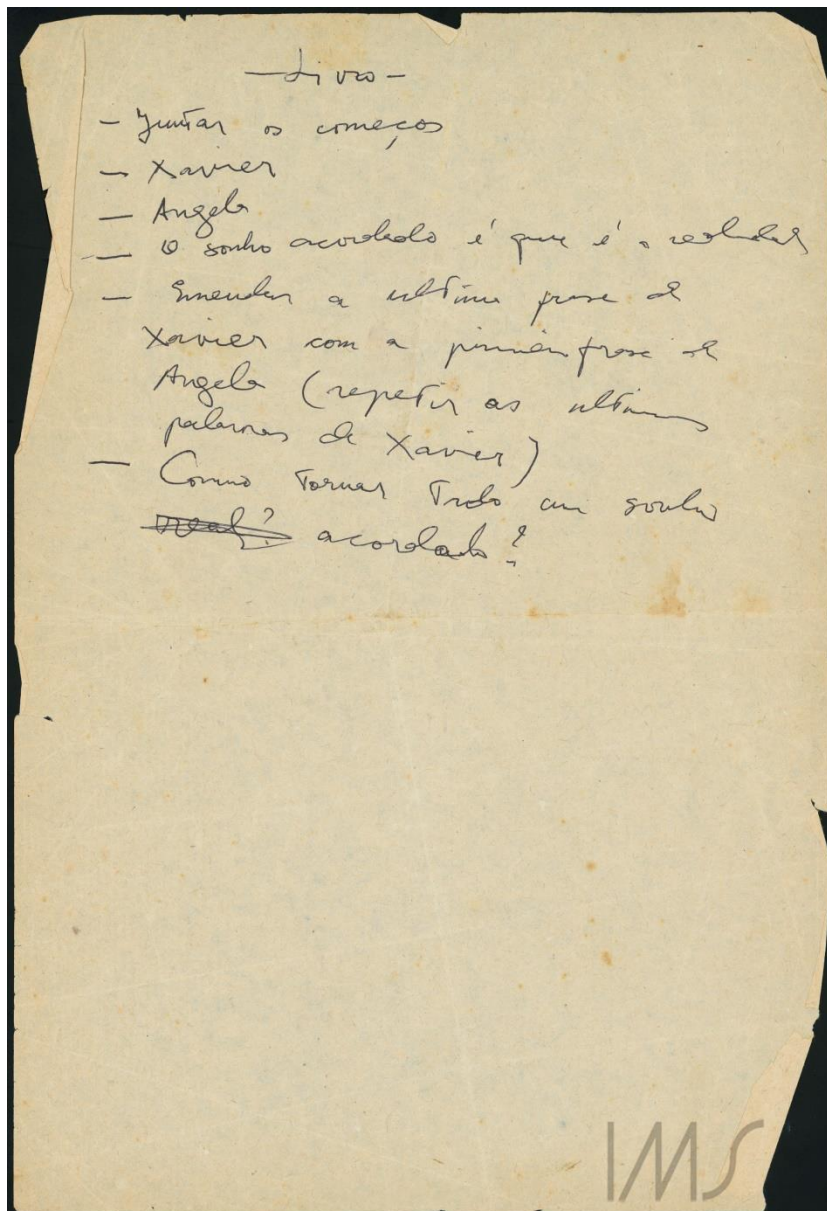 — Livro —
— Juntar os começos
— Xavier
— Angela
— O sonho acordado é que é a realidade
— Emendar a ultima frase de
Xavier com a primeira frase de
Angela (repetir as ultimas
palavras de Xavier)
— Como tornar tudo um sonho
real? acordado?
IMS